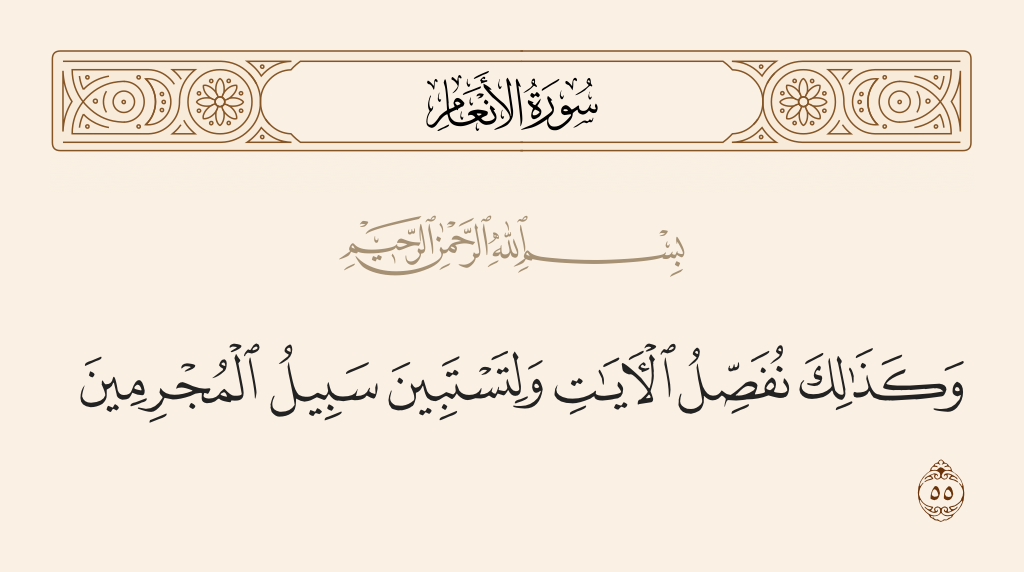 سُورَةُ الأَنْعَامِ
بِسْمِ ٱللَّهِ ٱلرَّحْمَٰنِ ٱلرَّحِيمِ
وَكَذَٰلِكَ نُفَصِّلُ ٱلْءَايَٰتِ وَلِتَسْتَبِينَ سَبِيلُ ٱلْمُجْرِمِينَ
٥٥